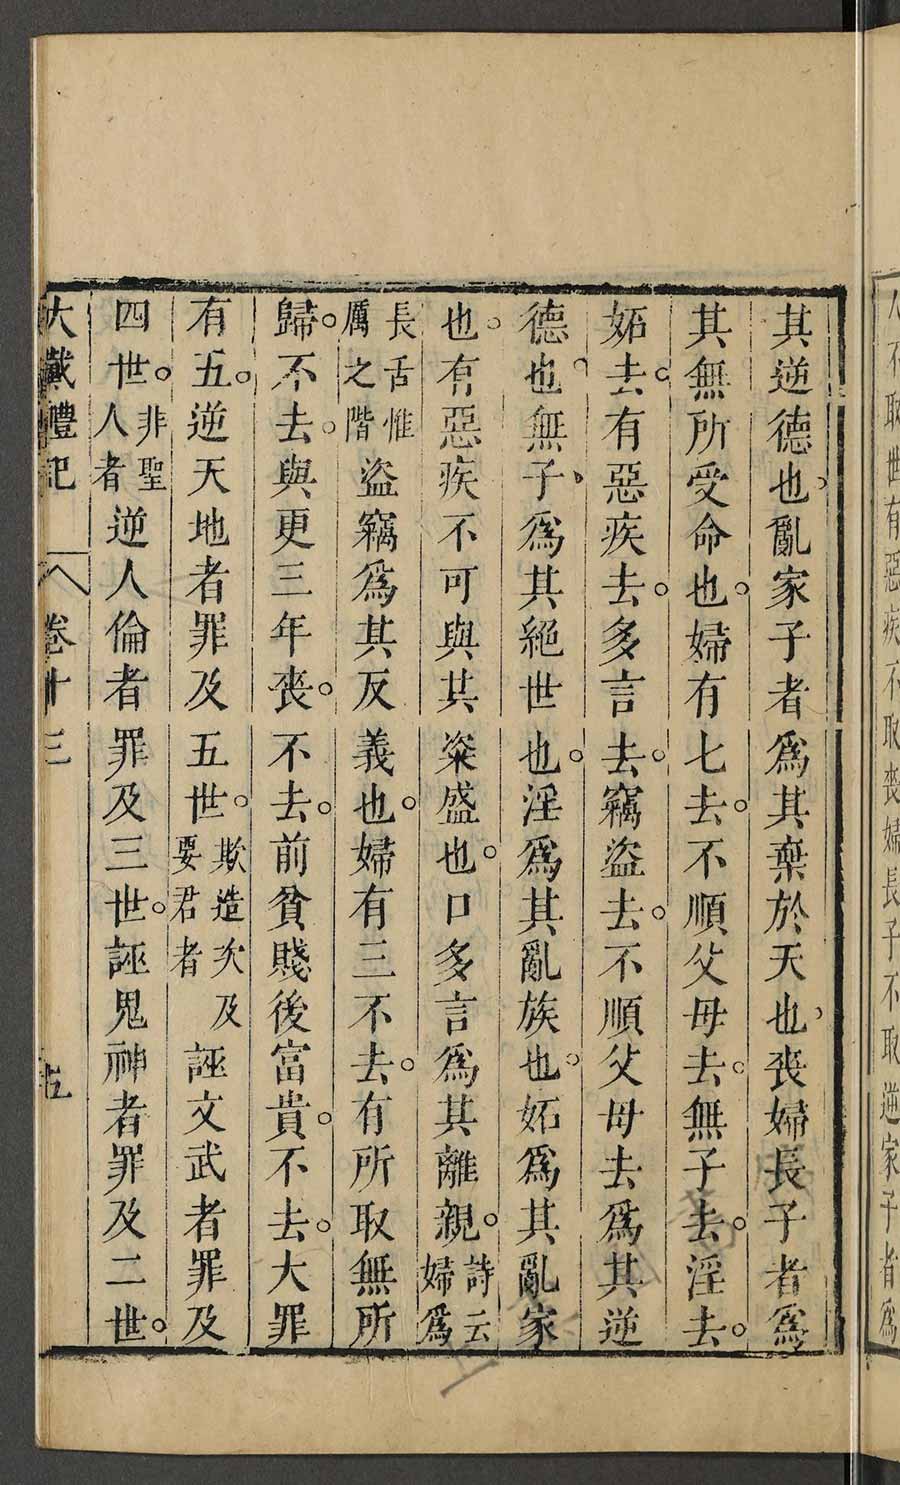 人不取世有惡疾不取喪婦長子不取逆家子者爲
其逆德也亂家子者爲其棄於天也喪婦長子者爲
其無所受命也婦有七去不順父母去無子去淫去
妬去有惡疾去多言去竊盜去不順父母去爲其逆
德也無子爲其絕世也淫爲其亂族也妬爲其亂家
也有惡疾不可與共粢盛也口多言爲其離親詩云婦爲
長舌惟厲之階盜竊爲其反義也婦有三不去有所取無所
歸不去與更三年喪不去前貧賤後富貴不去大罪
有五逆天地者罪及五世欺造次及要君者誣文武者罪及
四世非聖人者逆人倫者罪及三世誣鬼神者罪及二世
大戴禮記 卷十三 五